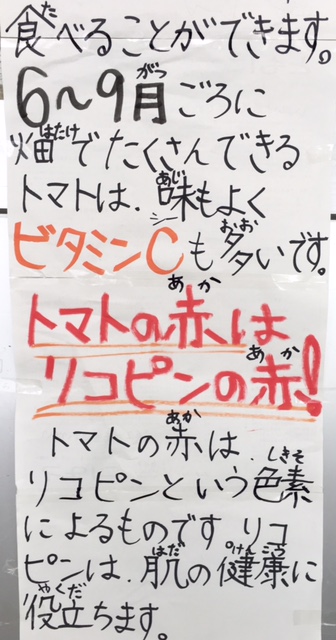 食べることができます。
6〜9月ごろに
畑でたくさんできる
トマトは、味もよく
ビタミンCも多いです。
トマトの赤は
リコピンの赤!
トマトの赤は、
リコピンという色素
によるものです。リコ
ピンは、肌の健康に
役立ちます。